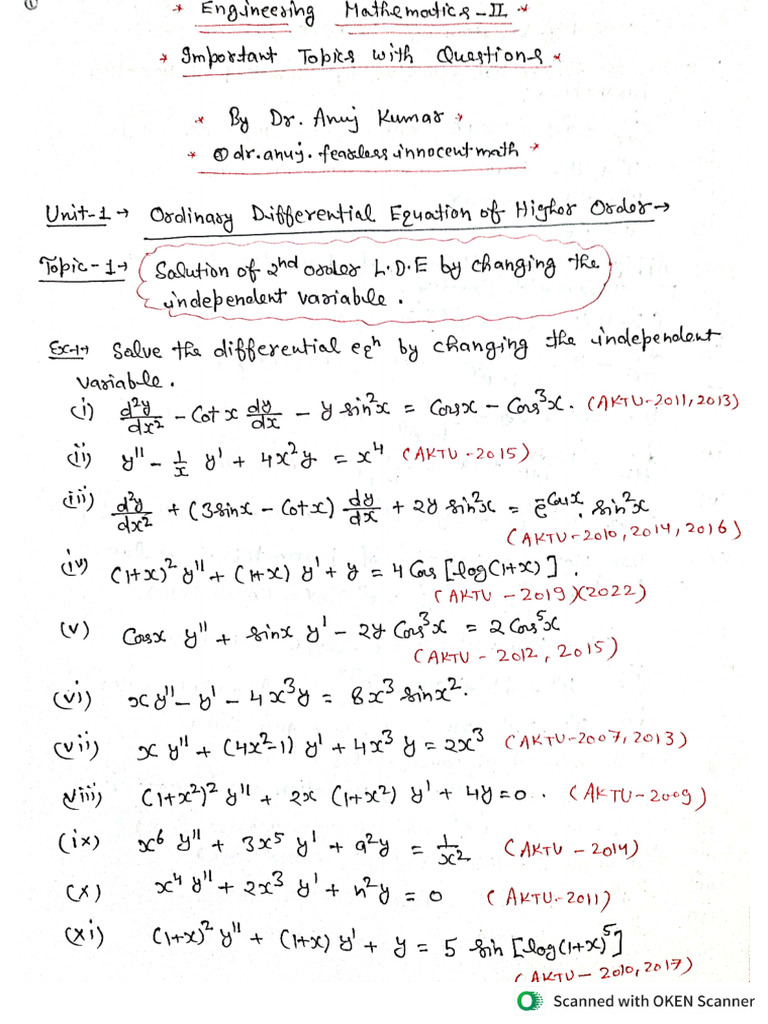 ①
* Engineering Mathematics-II *
* Important Topics with Questions *
* By Dr. Anuj Kumar *
* @dr.anuj.fearless innocent math *
Unit-1 → Ordinary Differential Equation of Higher Order →
Topic-1 → Solution of 2nd order L.D.E by changing the
independent variable.
Ex-1 → Solve the differential eqn by changing the independent
variable.
(i) d²y/dx² - Cot x dy/dx - y sin²x = Cosx - Cos³x. (AKTU-2011, 2013)
(ii) y'' - 1/x y' + 4x²y = x⁴ (AKTU-2015)
(iii) d²y/dx² + (3sinx - Cotx) dy/dx + 2y sin²x = e^-Cosx . sin²x
(AKTU-2010, 2014, 2016)
(iv) (1+x)² y'' + (1+x) y' + y = 4 Cos [log(1+x)].
(AKTU - 2019)(2022)
(v) Cosx y'' + sinx y' - 2y Cos³x = 2 Cos⁵x
(AKTU - 2012, 2015)
(vi) xy'' - y' - 4x³y = 8x³ sinx².
(vii) x y'' + (4x²-1) y' + 4x³ y = 2x³ (AKTU-2007, 2013)
(viii) (1+x²)² y'' + 2x (1+x²) y' + 4y = 0. (AKTU-2009)
(ix) x⁶ y'' + 3x⁵ y' + a²y = 1/x² (AKTU - 2014)
(x) x⁴ y'' + 2x³ y' + n²y = 0 (AKTU-2011)
(xi) (1+x)² y'' + (1+x) y' + y = 5 sin [log(1+x)⁵]
(AKTU - 2010, 2017)
Scanned with OKEN Scanner